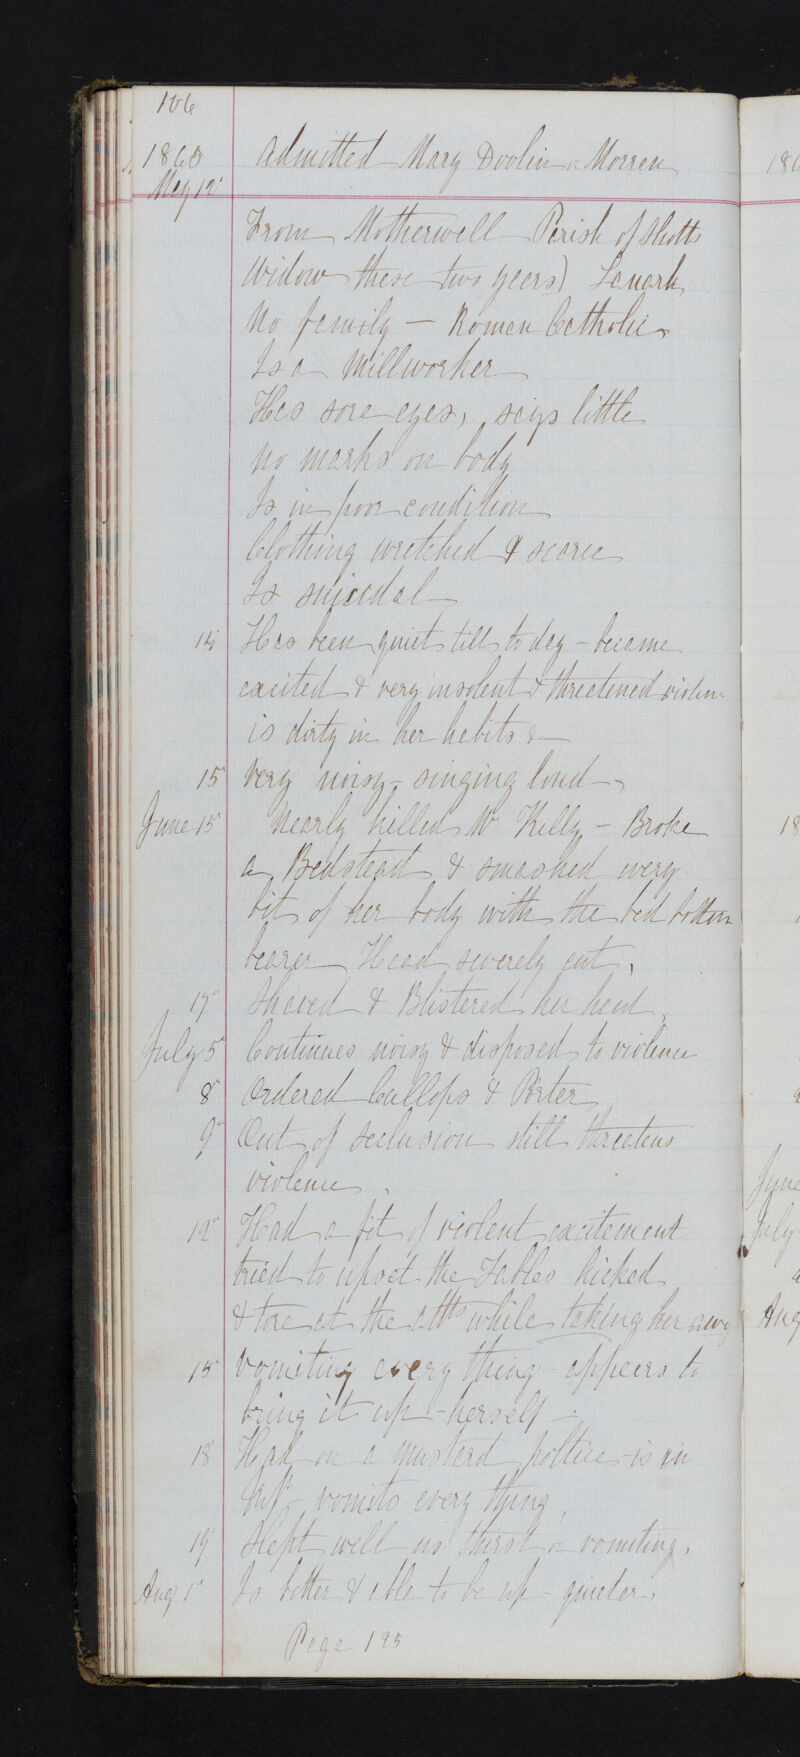 106
1860 Admitted Mary Doolin or Morren
May 12
From Motherwell Parish of Shotts
Widow these two years) Lanark
No family — Roman Catholic
Is a Millworker
Has sore eyes, says little
No marks on body
Is in poor condition
Clothing wretched & scarce
Is suicidal
14 Has been quiet till to day – became
excited & very insolent & threatened violence
is dirty in her habits &
15 Very noisy – singing loud
June 15 Nearly killed Mr Kelly – Broke
a Bedstead & smashed every
bit of her body with the bed bottom
bearer Head severely cut,
17 Shaved & Blistered her head,
July 5 Continues noisy & disposed to violence
8 Ordered Collops & Porter
9 Out of seclusion still threatens
violence
12 Had a fit of violent excitement
tried to upset the Tables kicked
& tore at the atts while taking her away
15 Vomiting every thing – appears to
bring it up – herself –
18 Had on a mustard poltice – is in
vomits every thing
19 Slept well no thirst or vomiting.
Aug 1 Is better & able to be up – quieter.
Page 195
186
18
June
July
Aug